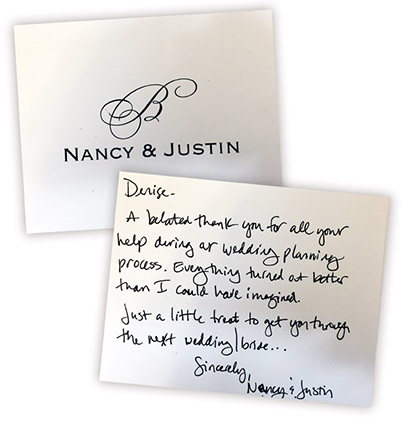 B
NANCY & JUSTIN
Denise-
A belated thank you for all your
help during our wedding planning
process. Everything turned out better
than I could have imagined.
Just a little treat to get you through
the next wedding/bride...
Sincerely,
Nancy & Justin